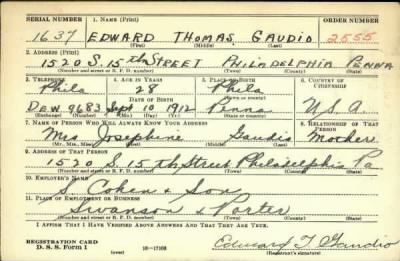 SERIAL NUMBER 1. NAME (Print) ORDER NUMBER
1637 EDWARD THOMAS GAUDIO 2555
(First) (Middle) (Last)
2. ADDRESS (Print)
1520 S. 15th STREET PHILADELPHIA PENNA
(Number and street or R. F. D. number) (Town) (County) (State)
3. TELEPHONE 4. AGE IN YEARS 5. PLACE OF BIRTH 6. COUNTRY OF CITIZENSHIP
Phila 28 Phila
DATE OF BIRTH (Town or county)
DEW 9683 Sept 10 1912 Penna U.S.A
(Exchange) (No.) (Mo.) (Day) (Yr.) (State or country)
7. NAME OF PERSON WHO WILL ALWAYS KNOW YOUR ADDRESS 8. RELATIONSHIP OF THAT PERSON
Mrs Josephine Gaudio Mother
(Mr., Mrs., Miss) (First) (Middle) (Last)
9. ADDRESS OF THAT PERSON
1520 S 15th Street Philadelphia Pa
(Number and street or R. F. D. number) (Town) (County) (State)
10. EMPLOYER'S NAME
S. Cohen & Son
11. PLACE OF EMPLOYMENT OR BUSINESS
Swanson & Porter
(Number and street or R. F. D. number) (Town) (County) (State)
I AFFIRM THAT I HAVE VERIFIED ABOVE ANSWERS AND THAT THEY ARE TRUE.
REGISTRATION CARD
D. S. S. Form 1 (over) 16—17105 Edward T Gaudio
(Registrant's signature)